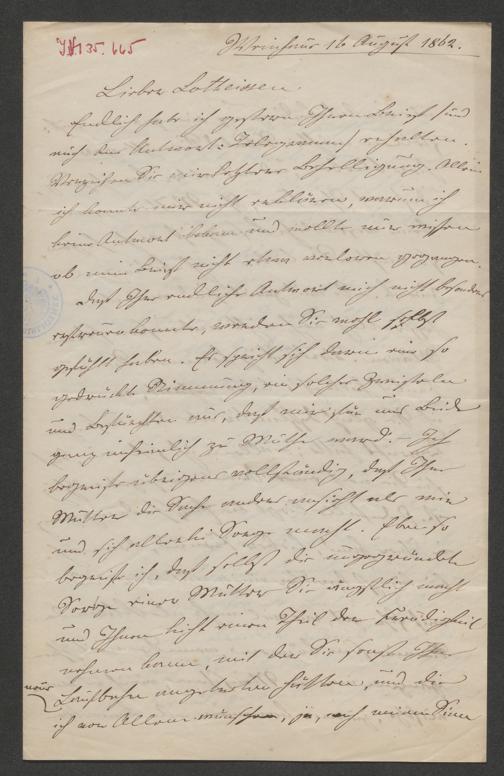 IN 135.665
Weinhaus 16 August 1862.
Lieber Lotheissen.
Endlich habe ich gestern Ihren Brief (und
auch die Antwort-Telegramm) erhalten.
Verzeihen Sie die letztere Behelligung. Allein
ich konnte mir nicht erklären, warum ich
keine Antwort bekam und wollte nur wissen
ob mein Brief nicht etwa verloren gegangen.
Daß Ihre endliche Antwort mich nicht besonders
erfreuen konnte, werden Sie wohl selbst
gefühlt haben. Es spricht sich darin eine so
gedrückte Stimmung, ein solches Zweifeln
und Befürchten aus, daß mir für uns Beide
ganz unheimlich zu Muthe ward. – Ich
begreife übrigens vollständig, daß Ihre
Mutter die Sache anders ansieht als wir
und sich allerlei Sorge macht. Eben so
begreife ich, daß selbst die ungegründete
Sorge einer Mutter Sie ängstlich macht
und Ihnen leicht einen Theil der Freudigkeit
nehmen kann, mit der Sie sonst Ihre
neue
Laufbahn angetreten hätten, und die
ich vor Allem wünschen, ja, nach meinem Sinn